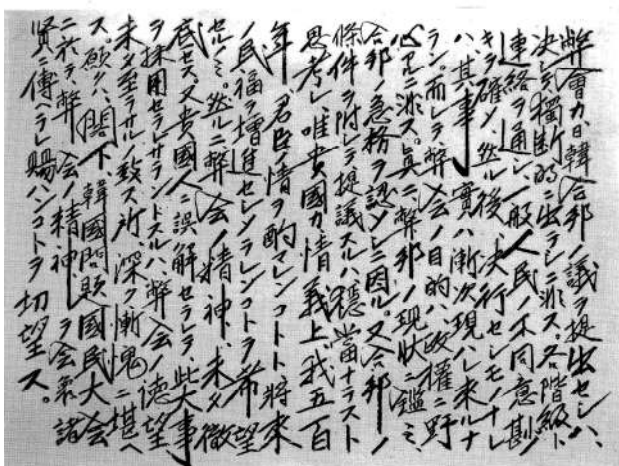 弊會カ日韓合邦ノ議ヲ提出セシハ、
決シテ獨斷的ニ出テシニ非ス。各階級ト
連絡ヲ通シ一般人民ノ不同意尠ノ
キヲ確メ、然ル後、決行セシモノナレ
ハ、其事實ハ漸次現ハレ来ルナ
ラン。而シテ、弊会ノ目的ハ、政權ニ野
心アルニ非ス。眞ニ弊邦ノ現状ニ鑑ミ、
合邦ノ急務ヲ認メシニ因ル。又合邦ノ
條件ヲ附シテ提議スルハ、穏當ナラスト
思考シ、唯貴國カ情義上、我五百
年、君臣ノ情ヲ酌マレンコトト、將来
ノ民福ヲ增進セシメラレンコトヲ希望
セルノミ。然ルニ弊会ノ精神、未タ徹
底セス。又貴國人ニ誤解セラレテ、此大事
ヲ採用セラレサラントスルハ、弊会ノ徳望
未タ至ラサルノ致ス所、深ク慚愧ニ堪ヘ
ス。願クハ、閣下、韓國問題國民大会
ニ於テ、弊会ノ精神ヲ会衆諸
賢ニ傳ヘラレ賜ハンコトヲ切望ス。